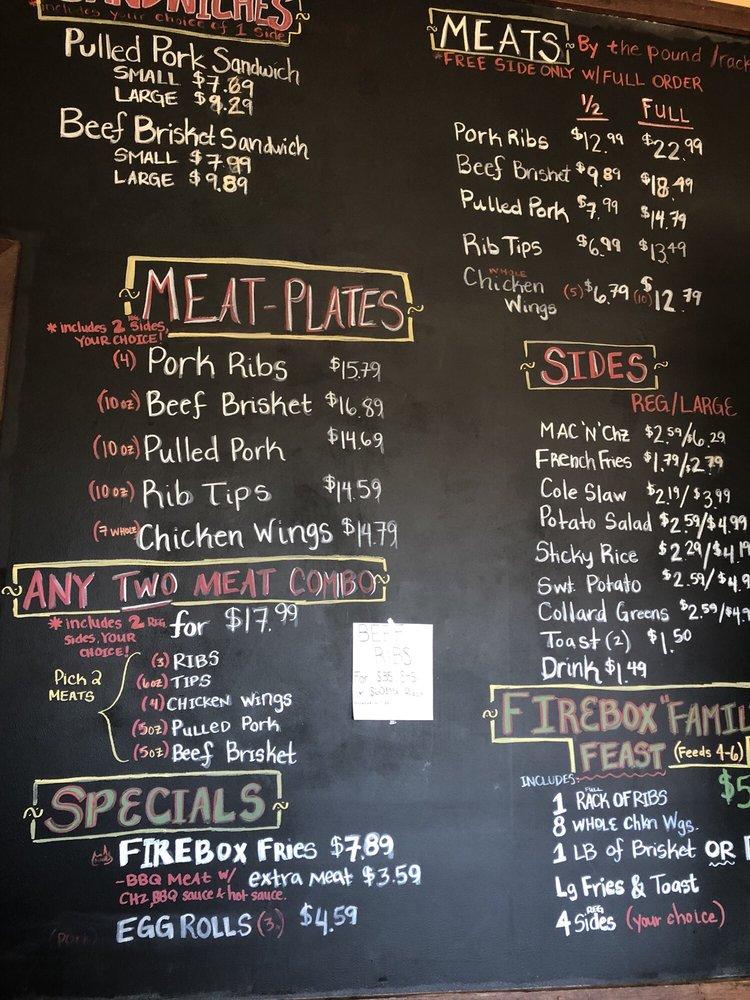 SANDWICHES
*includes your choice of 1 side
Pulled Pork Sandwich
SMALL $7.89
LARGE $9.29
Beef Brisket Sandwich
SMALL $7.99
LARGE $9.89
MEAT-PLATES
*includes 2 Reg Sides,
YOUR CHOICE!
(4) Pork Ribs $15.79
(10 oz) Beef Brisket $16.89
(10 oz) Pulled Pork $14.69
(10 oz) Rib Tips $14.59
(7 WHOLE) Chicken Wings $14.79
ANY TWO MEAT COMBO
*includes 2 REG for $17.99
Sides, YOUR
CHOICE!
Pick 2
MEATS
(3) RIBS
(6oz) TIPS
(4) CHICKEN WINGS
(5oz) PULLED PORK
(5oz) Beef Brisket
SPECIALS
FIREBOX FRIES $7.89
-BBQ MEAT W/ extra meat $3.59
CHZ, BBQ sauce & hot sauce.
(pork) EGG ROLLS (3) $4.59
BEEF
RIBS
MEATS By the pound/rack
*FREE SIDE ONLY W/FULL ORDER
1/2 FULL
Pork Ribs $12.99 $22.99
Beef Brisket $9.89 $18.49
Pulled Pork $7.99 $14.79
Rib Tips $6.99 $13.49
WHOLE
Chicken (5) $6.79 (10) $12.79
Wings
SIDES
REG/LARGE
MAC 'N' CHZ $2.59/$6.29
French Fries $1.79/$2.79
Cole Slaw $2.19/$3.99
Potato Salad $2.59/$4.99
Sticky Rice $2.29/$4.19
Swt. Potato $2.59/$4.9
Collard Greens $2.59/$4.9
Toast (2) $1.50
Drink $1.49
FIREBOX "FAMIL
FEAST (Feeds 4-6)
INCLUDES: $5
1 FULL RACK OF RIBS
8 WHOLE Chkn Wgs.
1 LB of Brisket OR
Lg Fries & Toast
4 REG Sides (your choice)